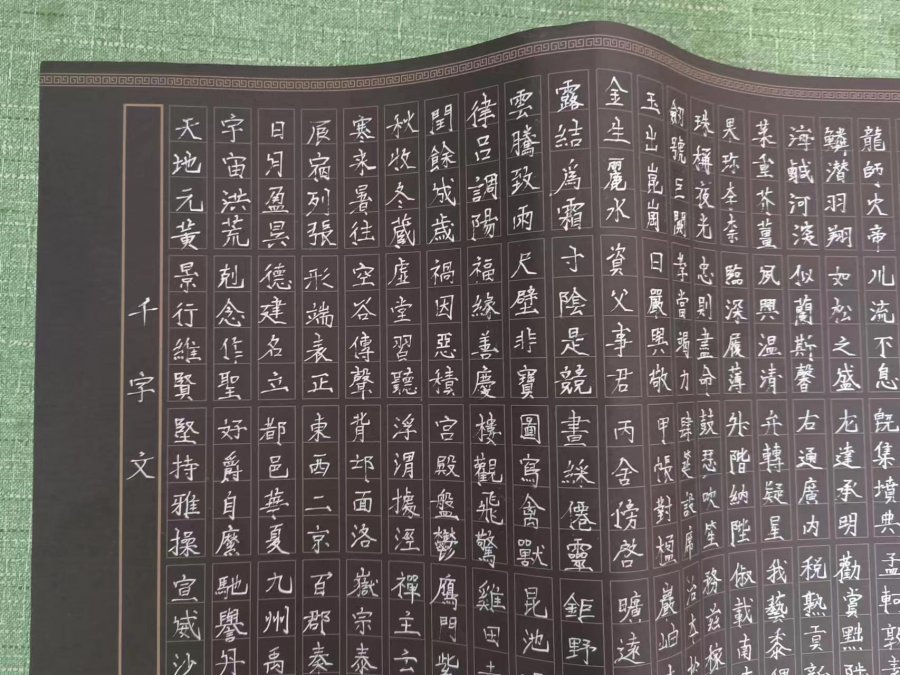 千字文
天地元黄
宇宙洪荒
日月盈昃
辰宿列張
寒来暑往
秋收冬藏
閏餘成歲
律吕調陽
雲騰致雨
露結爲霜
金生麗水
玉出崑崗
劒號巨闕
珠稱夜光
果珍李柰
菜重芥薑
海鹹河淡
鱗潜羽翔
龍師火帝
景行維賢
剋念作聖
德建名立
形端表正
空谷傳聲
虛堂習聽
禍因惡積
福緣善慶
尺璧非寶
寸陰是競
資父事君
曰嚴與敬
孝當竭力
忠則盡命
臨深履薄
夙興温凊
似蘭斯馨
如松之盛
川流不息
堅持雅操
好爵自縻
都邑華夏
東西二京
背邙面洛
浮渭據涇
宮殿盤鬱
樓觀飛驚
圖寫禽獸
畫綵僊靈
丙舍傍啓
甲帳對楹
肆筵設席
鼓瑟吹笙
升階納陛
弁轉疑星
右通廣内
左達承明
既集墳典
宣威沙
馳譽丹
九州禹
百郡秦
嶽宗泰
禪主云
鴈門紫
雞田
昆池
鉅野
曠遠
巖岫
治本
務茲稼
俶載南
我藝黍
稅熟貢新
勸賞黜陟
孟軻敦